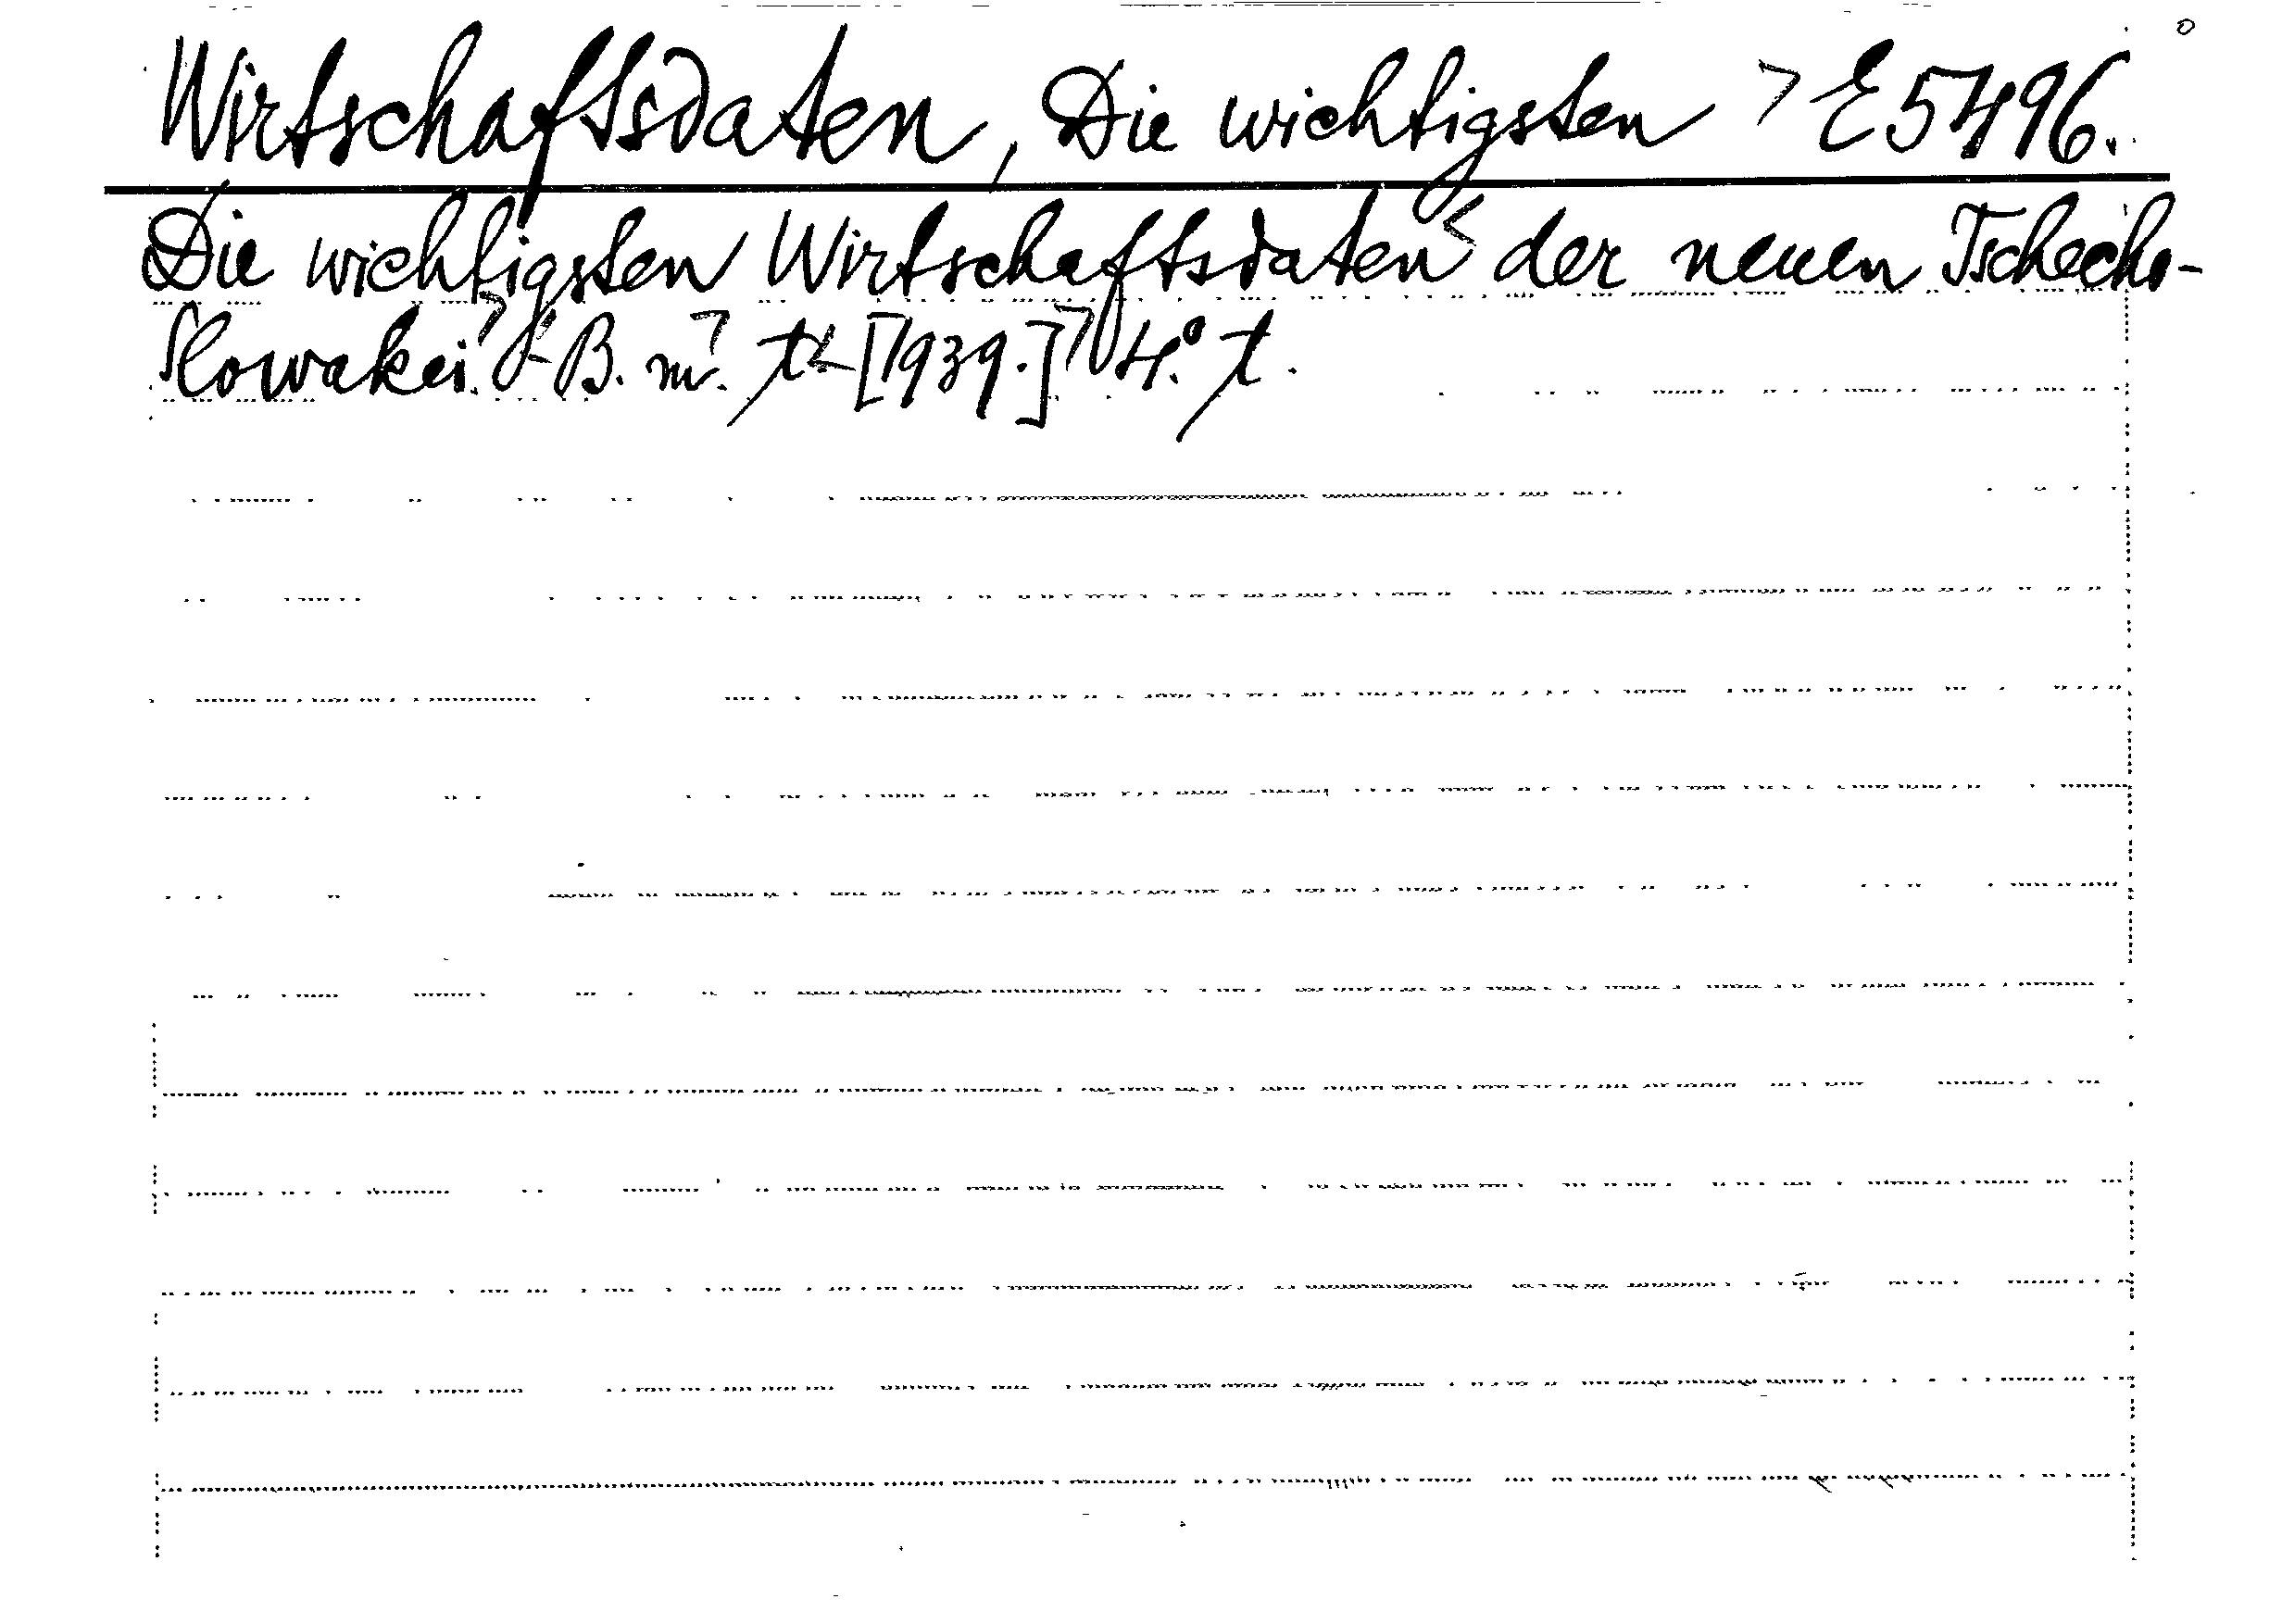 Wirtschaftsdaten, Die wichtigsten > E 5496.
Die wichtigsten Wirtschaftsdaten der neuen Tschecho-
slowakei. B. m. [1939.] 4.° t.